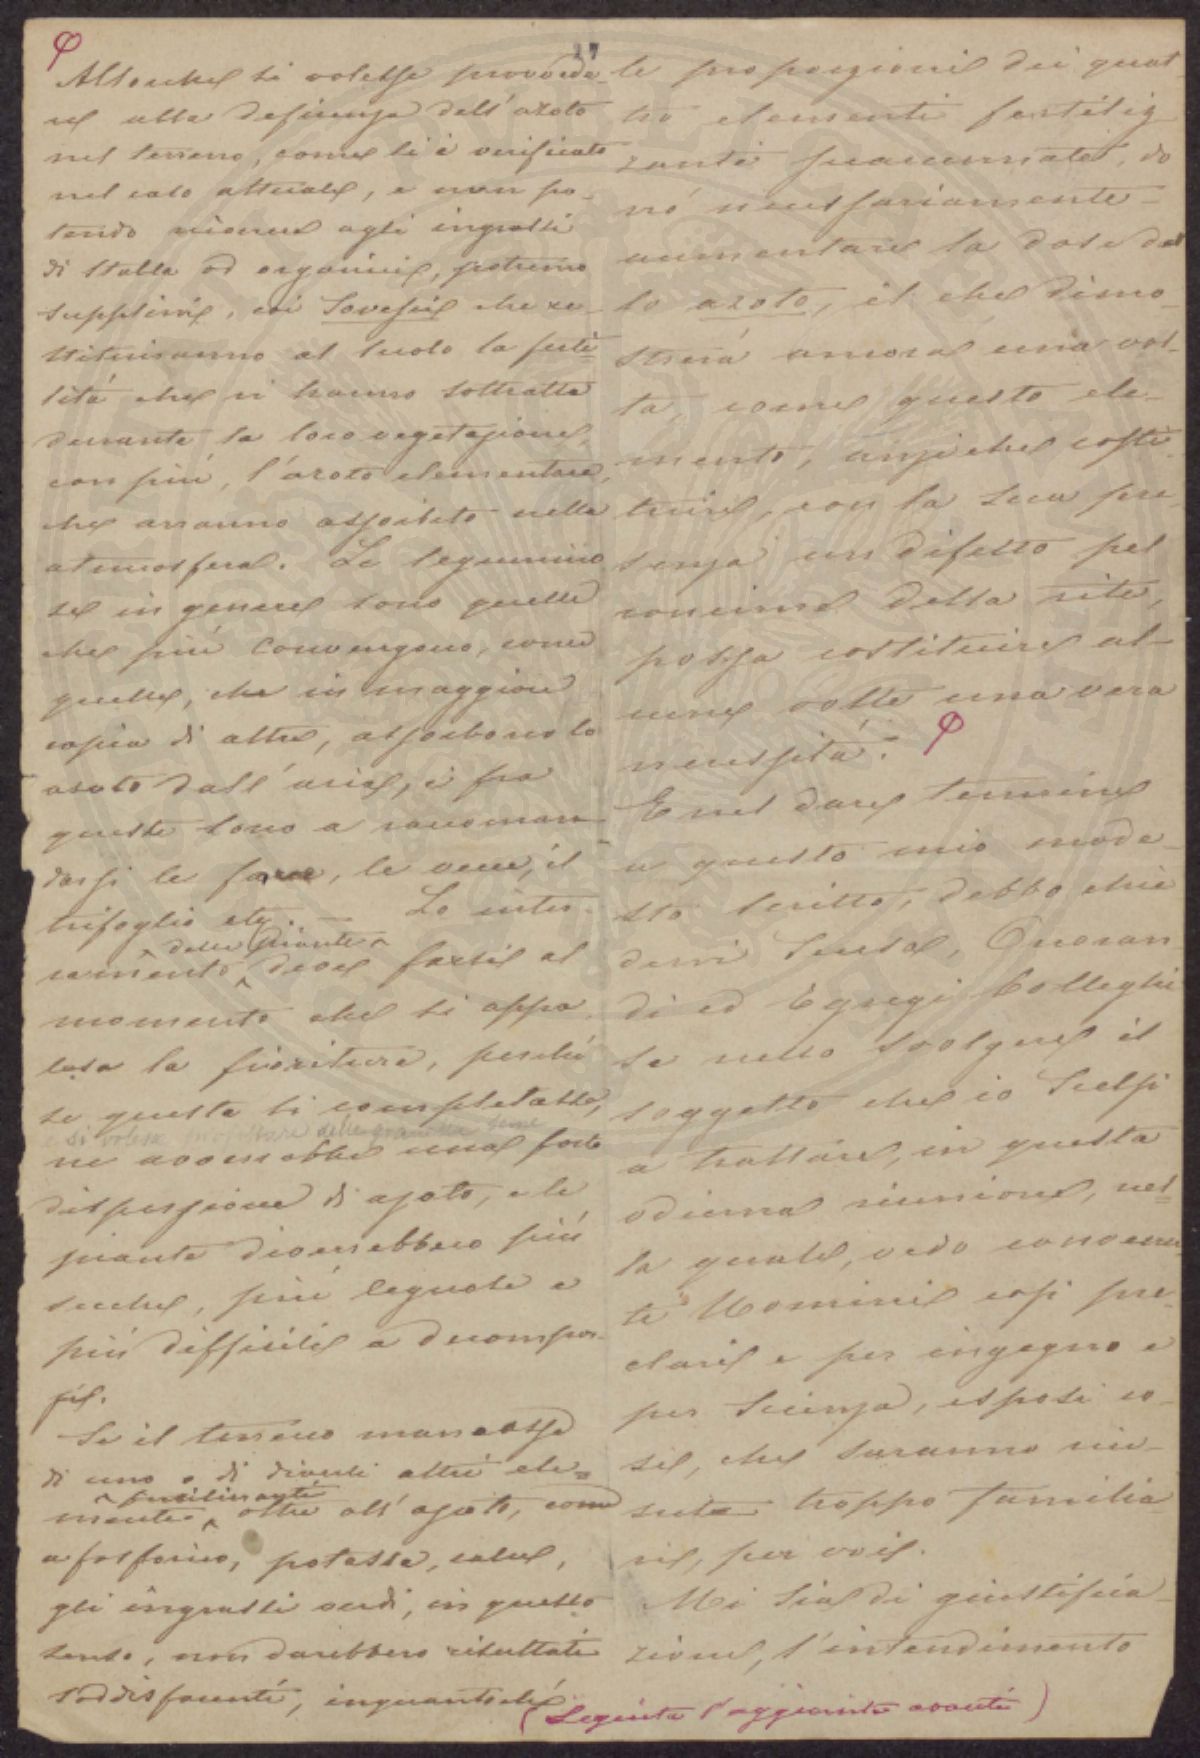 φ
27
Allorchè si volesse provvede-
re alla deficienza dell'azoto
nel terreno, come si è verificato
nel caso attuale, e non po-
tendo ricorrere agli ingrassi
di stalla od organici, potremo
supplirvi, coi Sovesci che re-
stituiranno al suolo la ferti-
lità che vi hanno sottratta
durante la loro vegetazione,
con più, l'azoto elementare,
che avranno assorbito nella
atmosfera. Le legumino
se in genere sono quelle
che più convengono, come
quelle, che in maggiore
copia di altre, assorbono lo
azoto dall'aria, e fra
queste sono a raccoman-
darsi le fave, le vecce, il
trifoglio etc. — Lo inter-
delle piante
ramento deve farsi al
momento che si appa
lesa la fioritura, perchè
se questa si completasse,
e si volesse profittare della granella seme
ne avverrebbe una forte
dispersione di azoto, e le
piante diverrebbero più
secche, più legnose e
più difficili a decompor-
si.
Se il terreno mancasse
di uno o di diversi altri ele-
fertilizzanti
menti, oltre all'azoto, come
a fosforico, potassa, calce,
gli ingrassi verdi, in questo
senso, non darebbero risultati
soddisfacenti, inquantochè
le proporzioni dei quat-
tro elementi fertiliz-
zanti summenzionati, do
vrò necessariamente
aumentare la dose del
lo azoto, il che dimo-
strerà ancora una vol-
ta, come questo ele-
mento, anzichè costi-
tuire, con la sua pre-
senza un difetto pel
concime della vite,
possa costituire al-
cune volte una vera
necessità. φ
E nel dare termine
a questo mio mode-
sto scritto, debbo chie
dervi scusa, Onoran-
di ed Egregi Colleghi
se nello svolgere il
soggetto che io scelsi
a trattare, in questa
odierna riunione, nel-
la quale, vedo convenu-
ti Uomini così pre-
clari e per ingegno e
per scienza, esposi co-
se, che saranno riu-
scite troppo familia-
ri, per voi.
Mi sia di giustifica-
zione, l'intendimento
(Seguita l'aggiunta avanti)